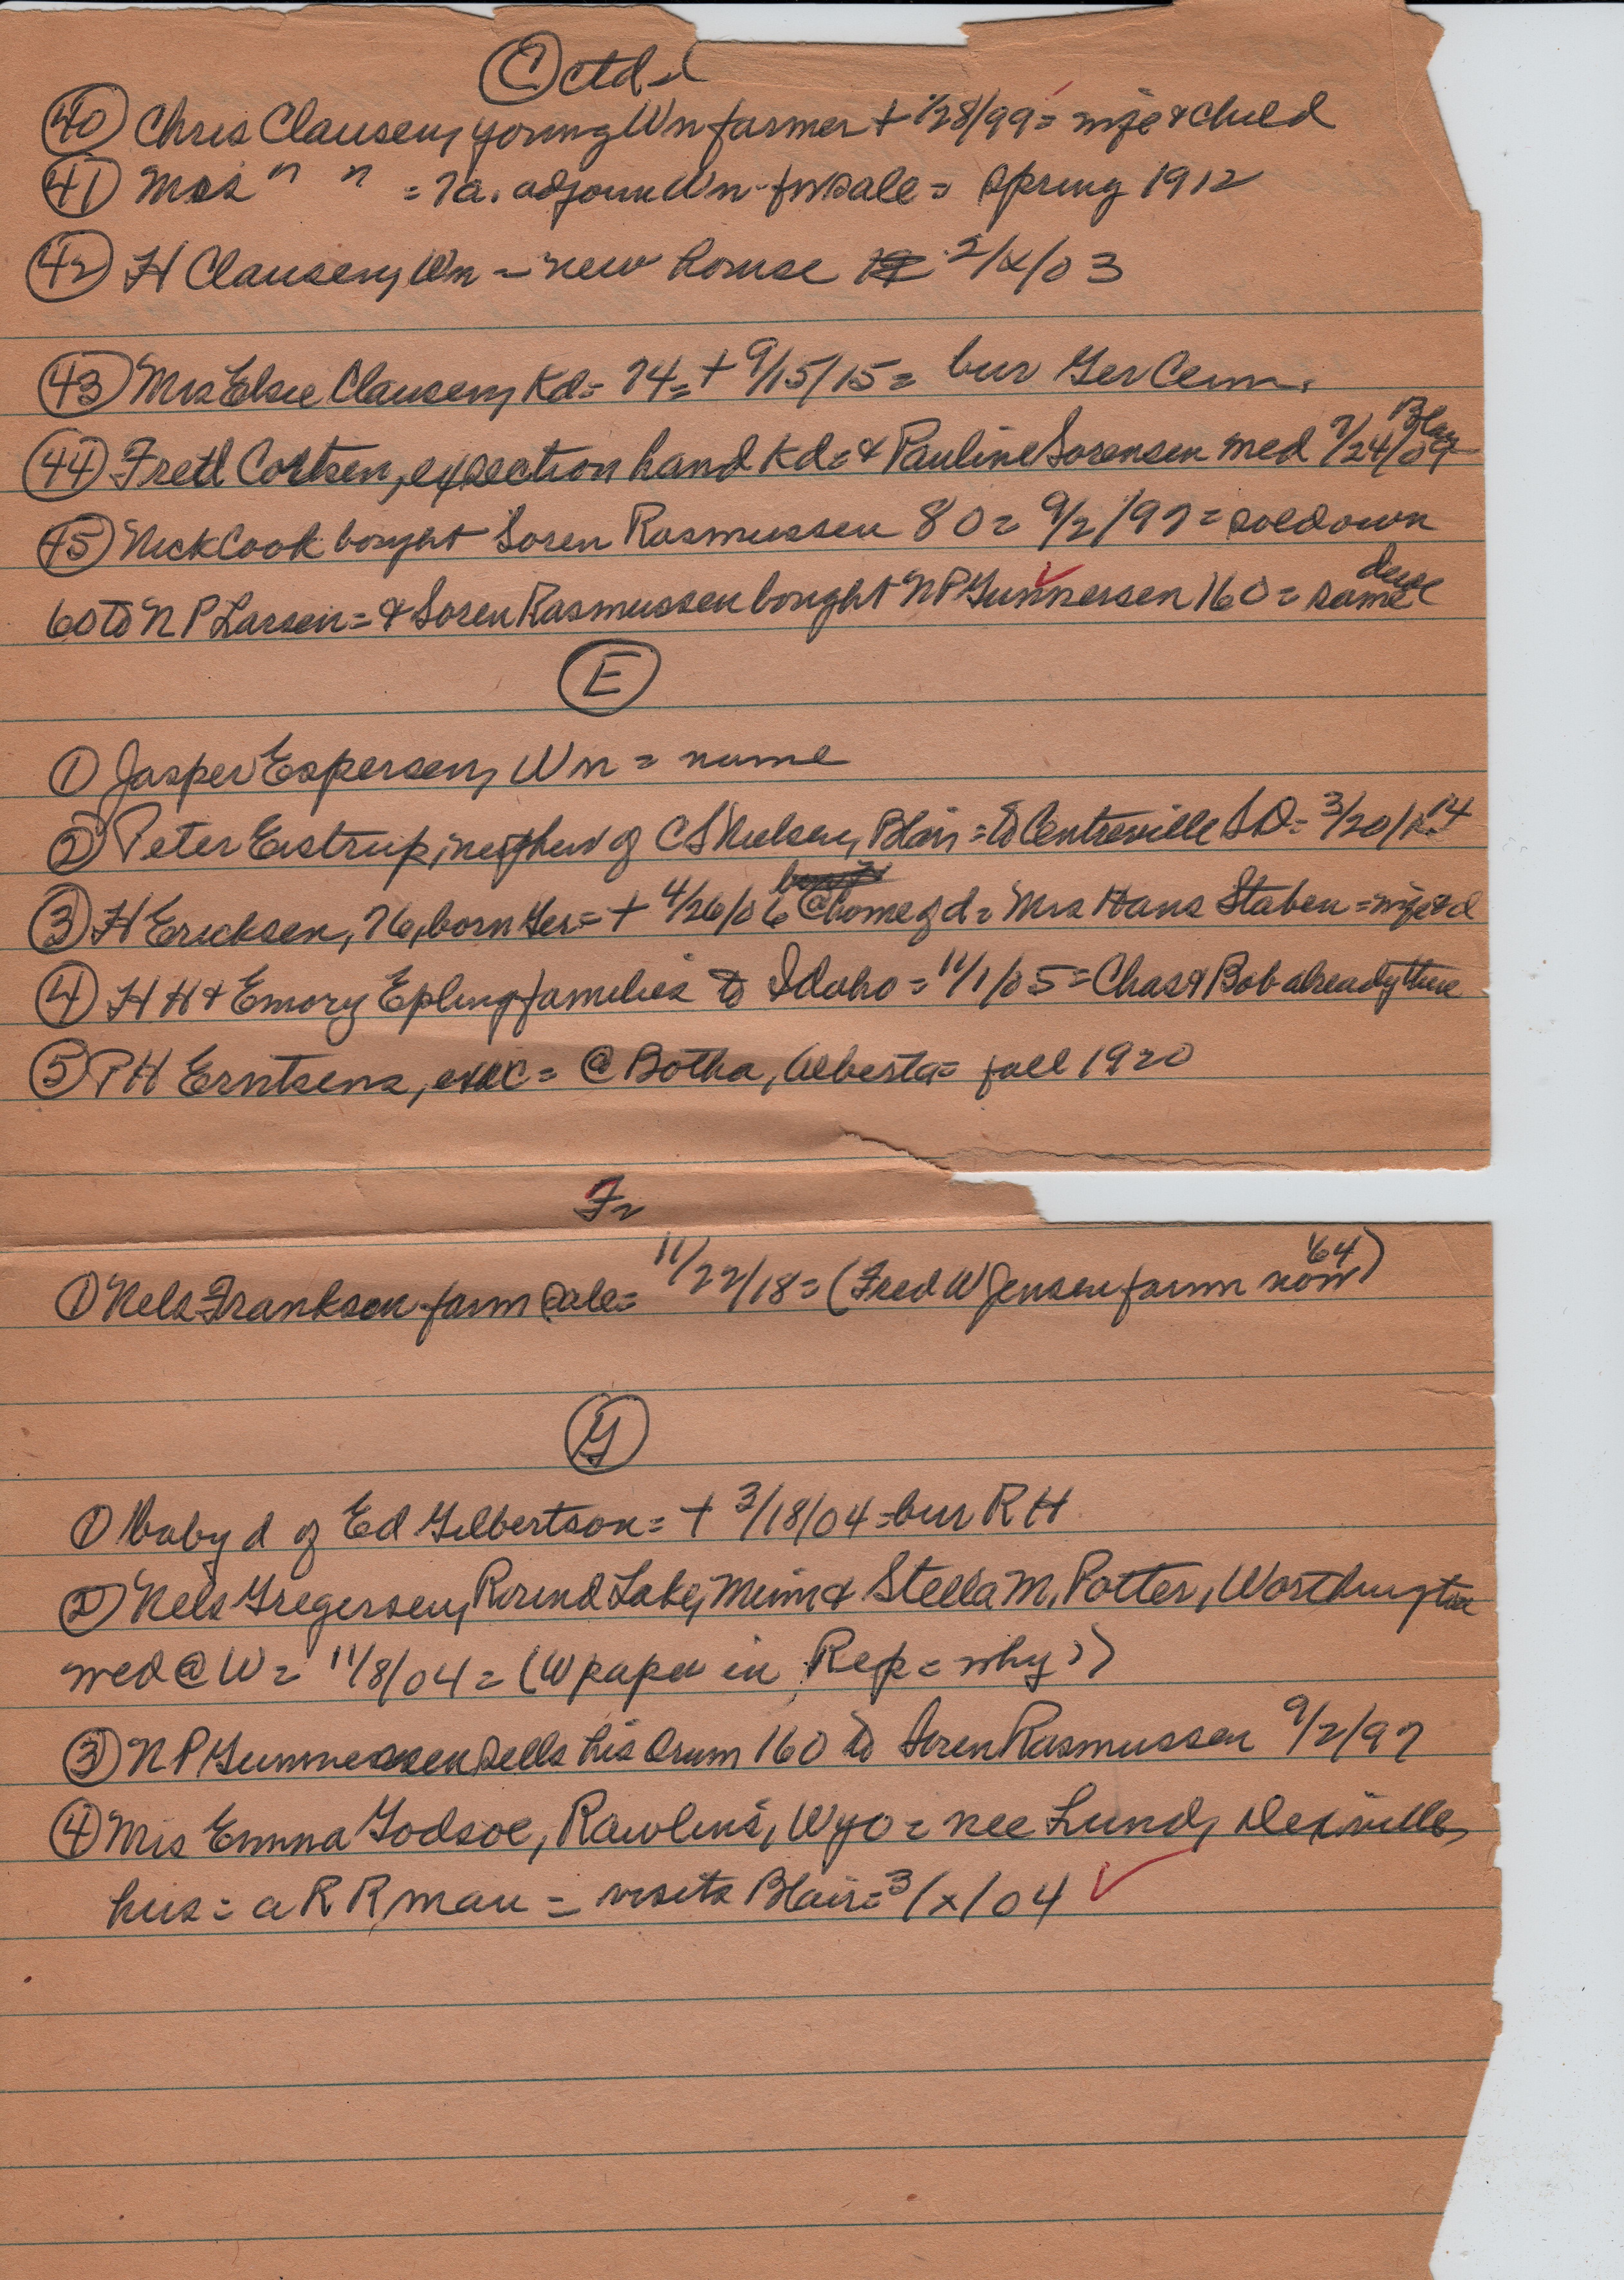 C ctd
40 Chris Clausen, young Wn farmer + 1/28/99 = wife & child
41 Mrs " " = 7a. adjoin Wn - for sale = spring 1912
42 H Clausen, Wn - new house 2/x/03
43 Mrs Elsie Clausen, Kd = 74 = + 9/15/15 = bur Ger Cem.
44 Fred Cortsen, ex section hand Kd = & Pauline Sorensen med 7/24/09 Blair
45 Nick Cook bought Soren Rasmussen 80 = 9/2/97 = sold own
60 to N P Larsen = & Soren Rasmussen bought N P Gunnersen 160 = same date
E
1 Jasper Espersen, Wn = name
2 Peter Erstrup, nephew of C S Nielsen, Blair = to Centreville S D = 3/20/14
3 H Ericksen, 76, born Ger = + 4/26/06 @ home of d = Mrs Hans Staben = wife & d
4 H H & Emory Epling families to Idaho = 11/1/05 = Chas & Bob already there
5 P H Erntsens, = @ Botha, Alberta = fall 1920
F
1 Nels Frankson farm sale = 11/22/18 = (Fred W Jensen farm now '64)
G
1 baby d of Ed Gilbertson = + 3/18/04 = bur R H
2 Nels Gregersen, Round Lake, Minn & Stella M. Potter, Worthington
med @ W = 11/8/04 = (W paper in Rep = why?)
3 N P Gunnersen sells his Orum 160 to Soren Rasmussen 9/2/97
4 Mrs Emma Godsoe, Rawlins, Wyo = nee Lund,
hus = a R R man = visits Blair = 3/x/04